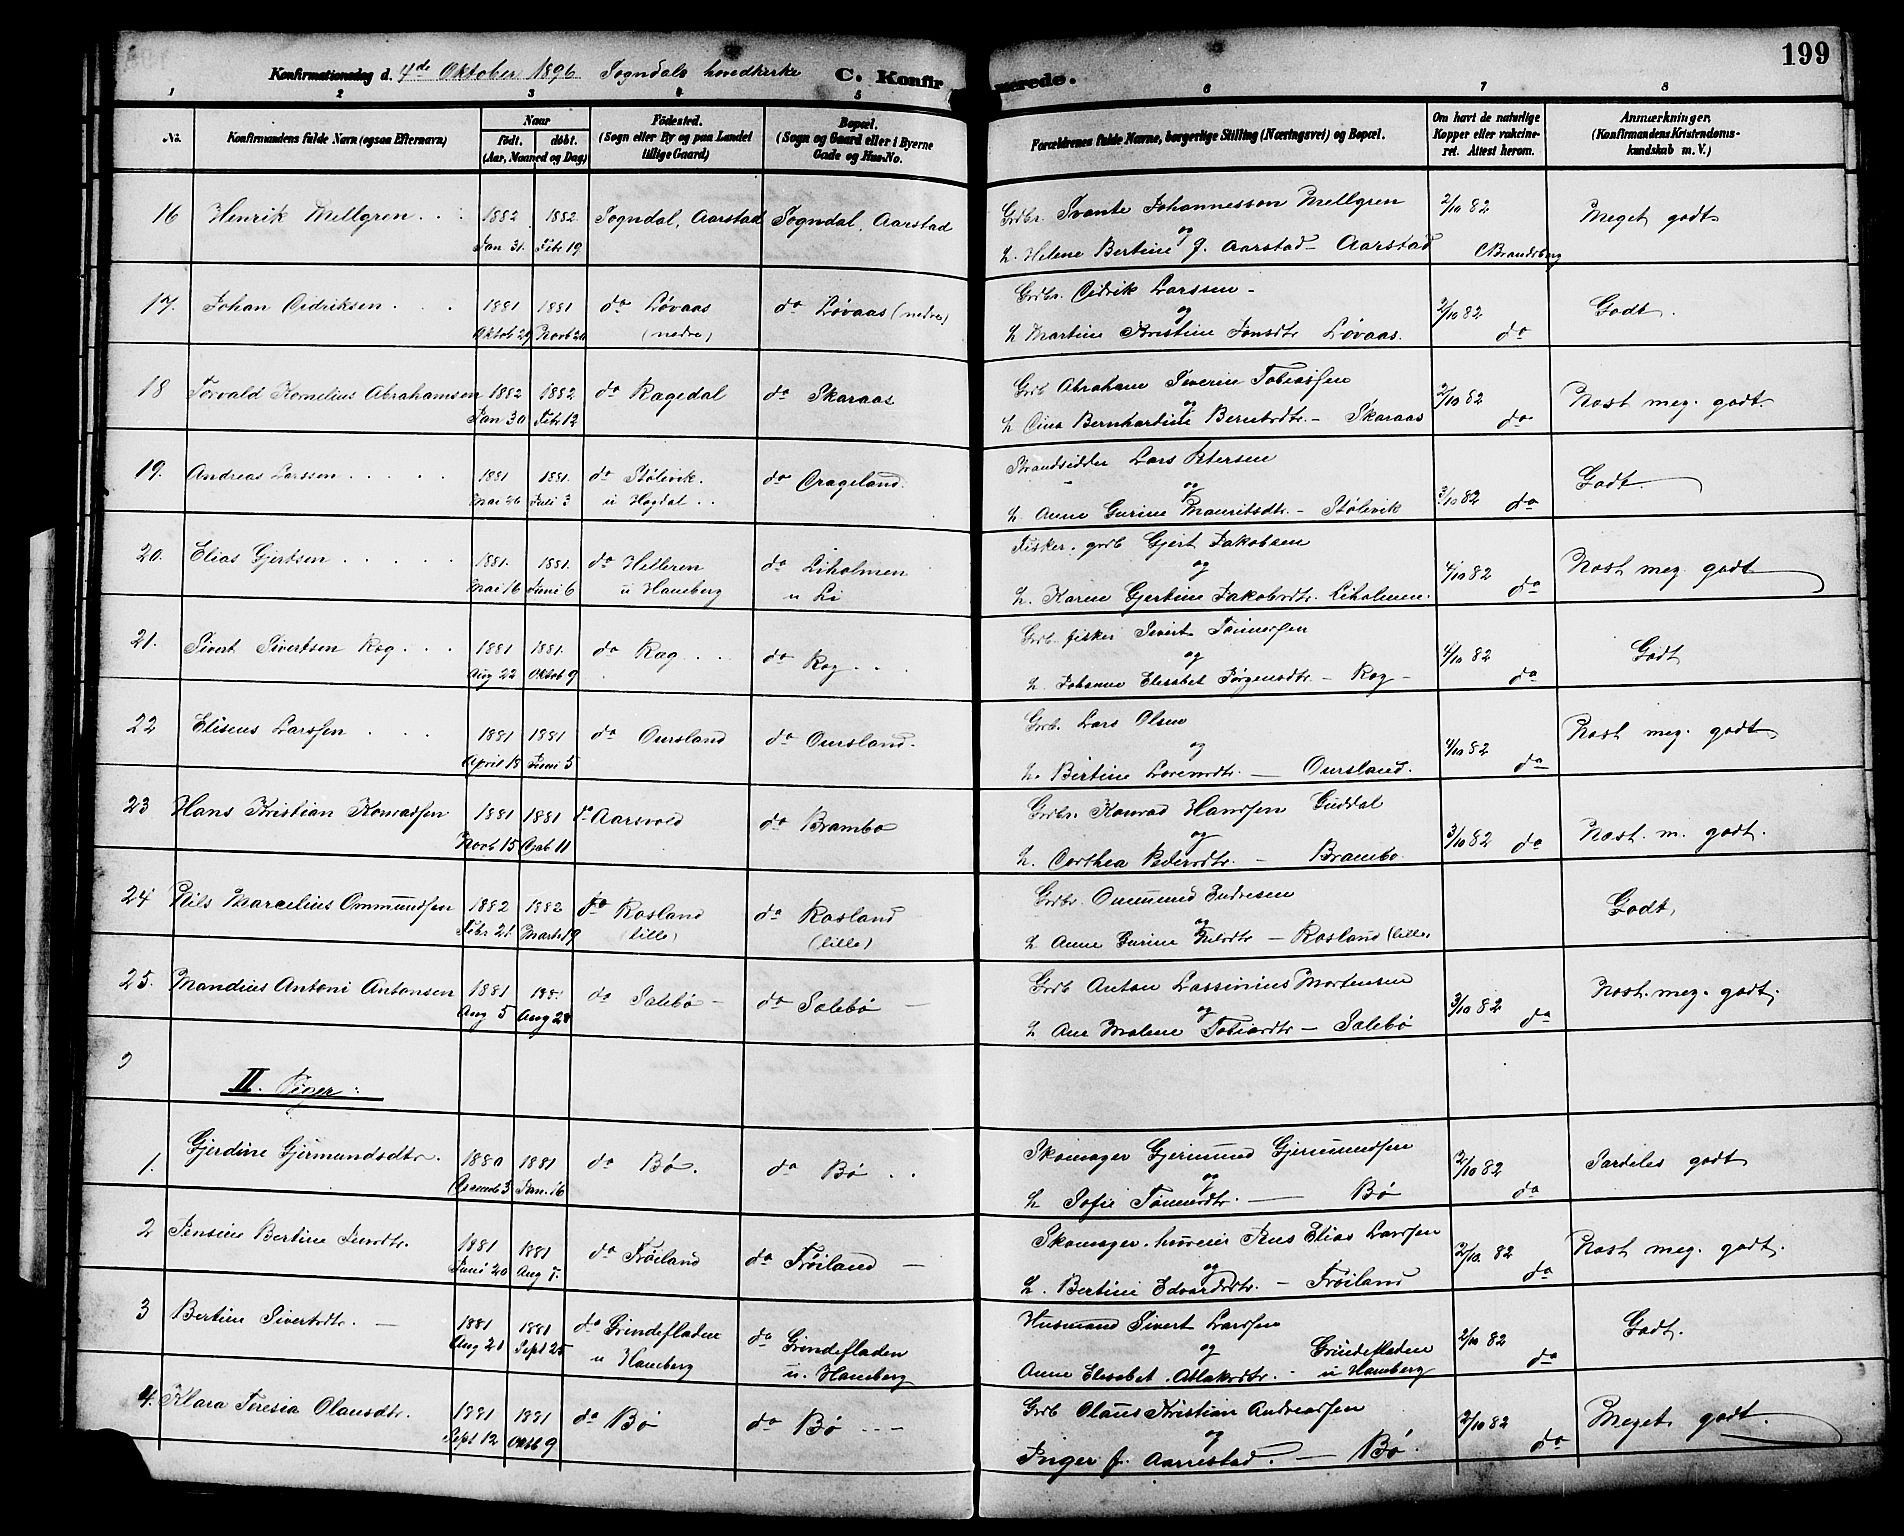 199
Konfirmationsdag d. 4de Oktober 1896 Sogndals hovedkirke C. Konfirmerede.
1 2 3 4 5 6 7 8
No. Konfirmandens fulde Navn (ogsaa Efternavn) Naar født. døbt. (Aar, Maaned og Dag) Fødested. (Sogn eller By og paa Landet tillige Gaard) Bopæl. (Sogn og Gaard eller i Byerne Gade og Hus-No. Forældrenes fulde Navne, borgerlige Stilling (Næringsvei) og Bopæl. Om havt de naturlige Kopper eller vakcineret. Attest herom. Anmærkninger. (Konfirmandens Kristendomskundskab m. V.)
16 Henrik Mellgren 1882 1882 Sogndal, Aarstad Sogndal, Aarstad Grdbr. Svante Johannesson Mellgren 2/10 82 Meget godt
Jan 31. Febr 19 og
h. Helene Bertine f. Aarstad - Aarstad
17. Johan Cedriksen 1881 1881 do Løvaas do Løvaas (nedre) Grdbr. Cedrik Larssen - 2/10 82 Godt.
Oktob 29 Novb 20 (nedre) og do
h Martine Kristine Jonsdtr Løvaas.
18 Torvald Kornelius Abrahamsen 1882 1882 do Ragedal do Skaraas Grdb Abraham Severin Tobiassen 2/10 82 Nost meg. godt.
Jan 30 Febr 12 og do
h Bernhartine Berntsdtr. - Skaraas
19. Andreas Larssen 1881 1881. do Stølsvik. do Drageland. Strandsidder Lars Petersen 3/10 82 Godt.
Mai 26 Juli 3 u Hogdal og do
h. Anne Gurine Mauritsdtr. - Stølsvik
20. Elias Gjertsen 1881. 1881. do Helleren do Liholmen Fisker. grdb Gjert Jakobsen 4/10 82 Nost meg godt
Mai 16 Juni 6 u Haneberg u Li og do
h. Karen Gjertine Jakobsdtr. Liholmen.
21. Sivert Sivertsen Rog 1881 1881. do Rog do Rog Grdb. fisker Sivert Tønnessen 4/10 82 Godt
Aug 22 Oktob 9 og do
h. Johanne Elisabet Jørgensdtr. - Rog -
22 Eliseus Larssen 1881 1881 do Oursland do Oursland. Grdb. Lars Olsen 4/10 82 Nost meg. godt
April 18 Juni 5 og do
h. Bertine Lorensdtr. - Oursland.
23 Hans Kristian Konradsen 1881 1881 do Aarsvold do Brambo Grdbr. Konrad Hansen Guddal 3/10 82 Nost. m. godt.
Novb 15 11 og do
h. Dorthea Pedersdtr. - Brambo.
24 Nils Marcelius Ommundsen 1882 1882 do Rosland do Rosland Grdbr. Ommund Endresen Godt,
Febr 21 Marts 19 (lille) (lille) og
h Anne Gurine - Rosland (lille)
25. Mandius Antoni Antonsen 1881 do Salebø - do Salebø - Grdb Anton Lassinius Mortensen 3/10 82 Nost. meg. godt.
Aug 5 Aug 28 og do
h Ane Malene Tobiasdtr - Salebø
II. Piger:
1. Gjerdine Gjermundsdtr. 1880 1881 do Bø. do Bø Skomager Gjermund Gjermundsen 2/10 82 Særdeles godt
Decemb 3 Jan. 16 og do
h Sofie Tønnesdtr. - Bø
2 Jensine Bertine Jensdtr. 1881 1881 do Frøiland do Frøiland - Skomager. huseier Jens Elias Larssen 2/10. 82 Nost meg. godt.
Juni 20 Aug 7. og do
h. Bertine Edvardsdtr. - Frøiland
3 Bertine Sivertsdtr. - 1881 1881 do Grindefladen do Grindefladen Husmand Sivert Larssen 2/10 82 Godt.
Aug 21 Sept 25 u Haneberg u. Haneberg og Grindefladen do
Anne Elisabet Aslaksdtr. - u Haneberg
4. Klara Teresia Olausdtr. 1881 1881 do Bø do Bø - - Grdb Olaus Kristian Andreassen 2/10 82 Meget godt.
Sept 12 Oktb 9 og do
Inger f. Aarrestad. - Bø.